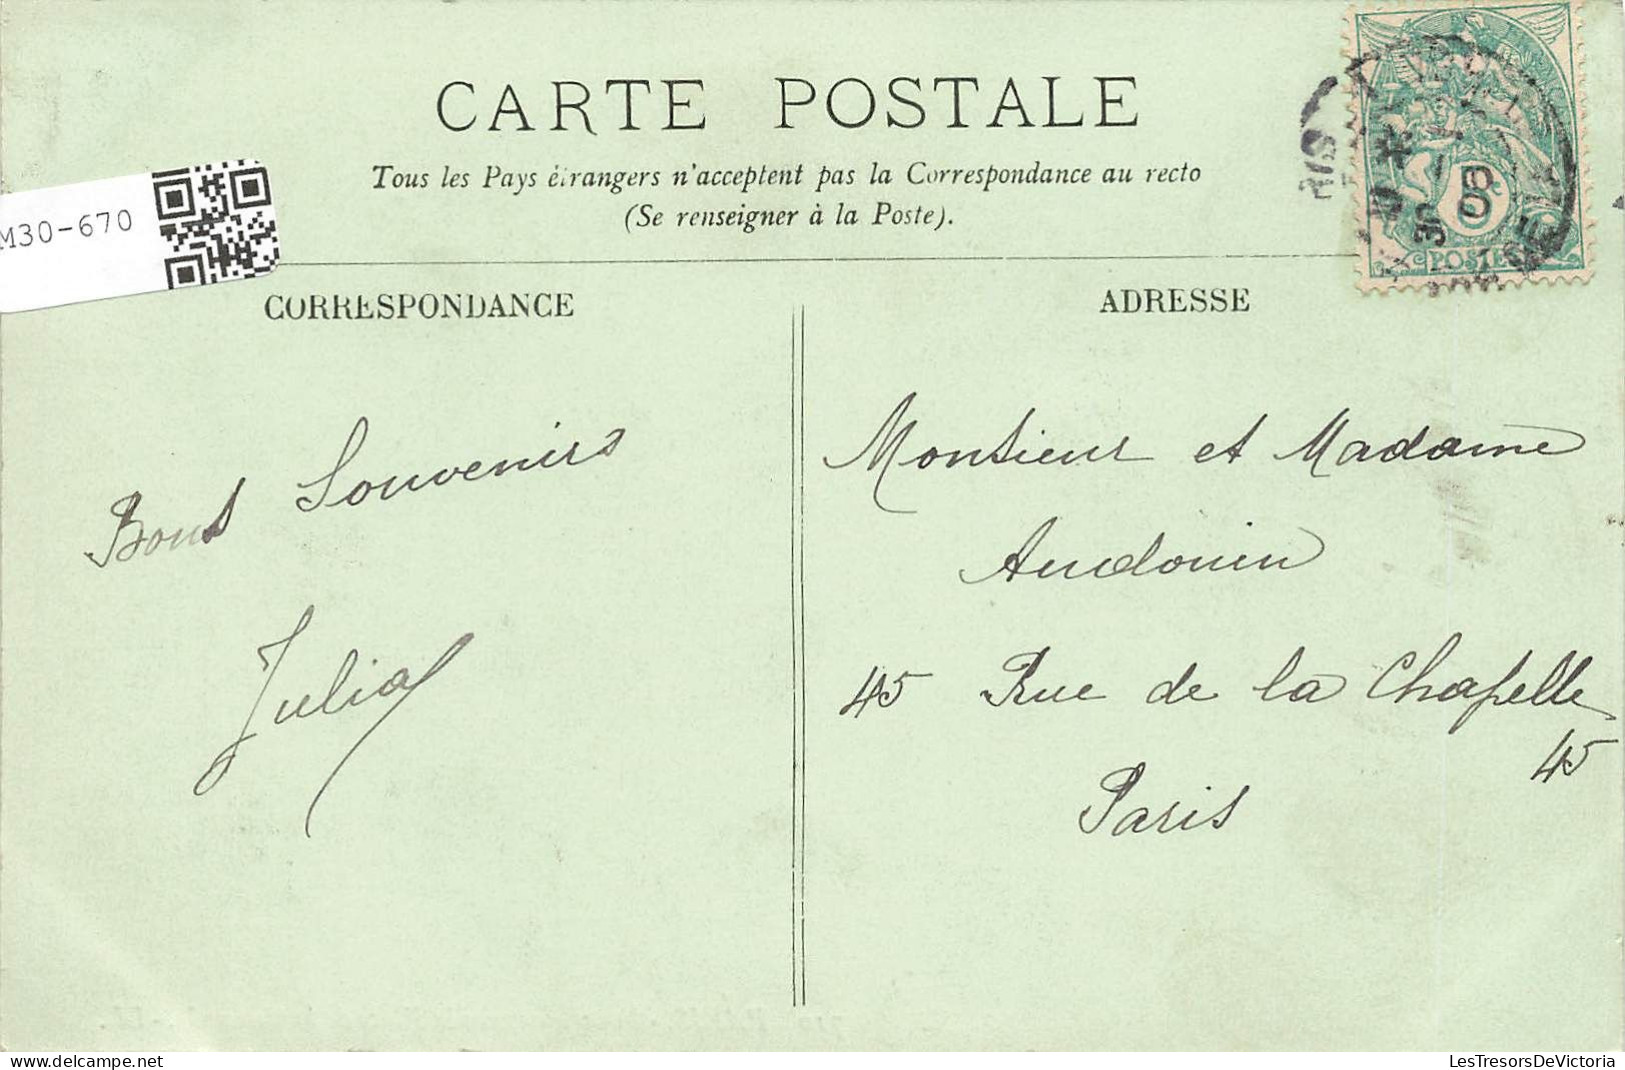 CARTE POSTALE
Tous les Pays étrangers n'acceptent pas la Correspondance au recto
(Se renseigner à la Poste).
M30-670
CORRESPONDANCE
ADRESSE
Bons Souvenirs
Julia
Monsieur et Madame
Audouin
45 Rue de la Chapelle
45
Paris
5
POSTES
08
LesTresorsDeVictoria
delcampe.net